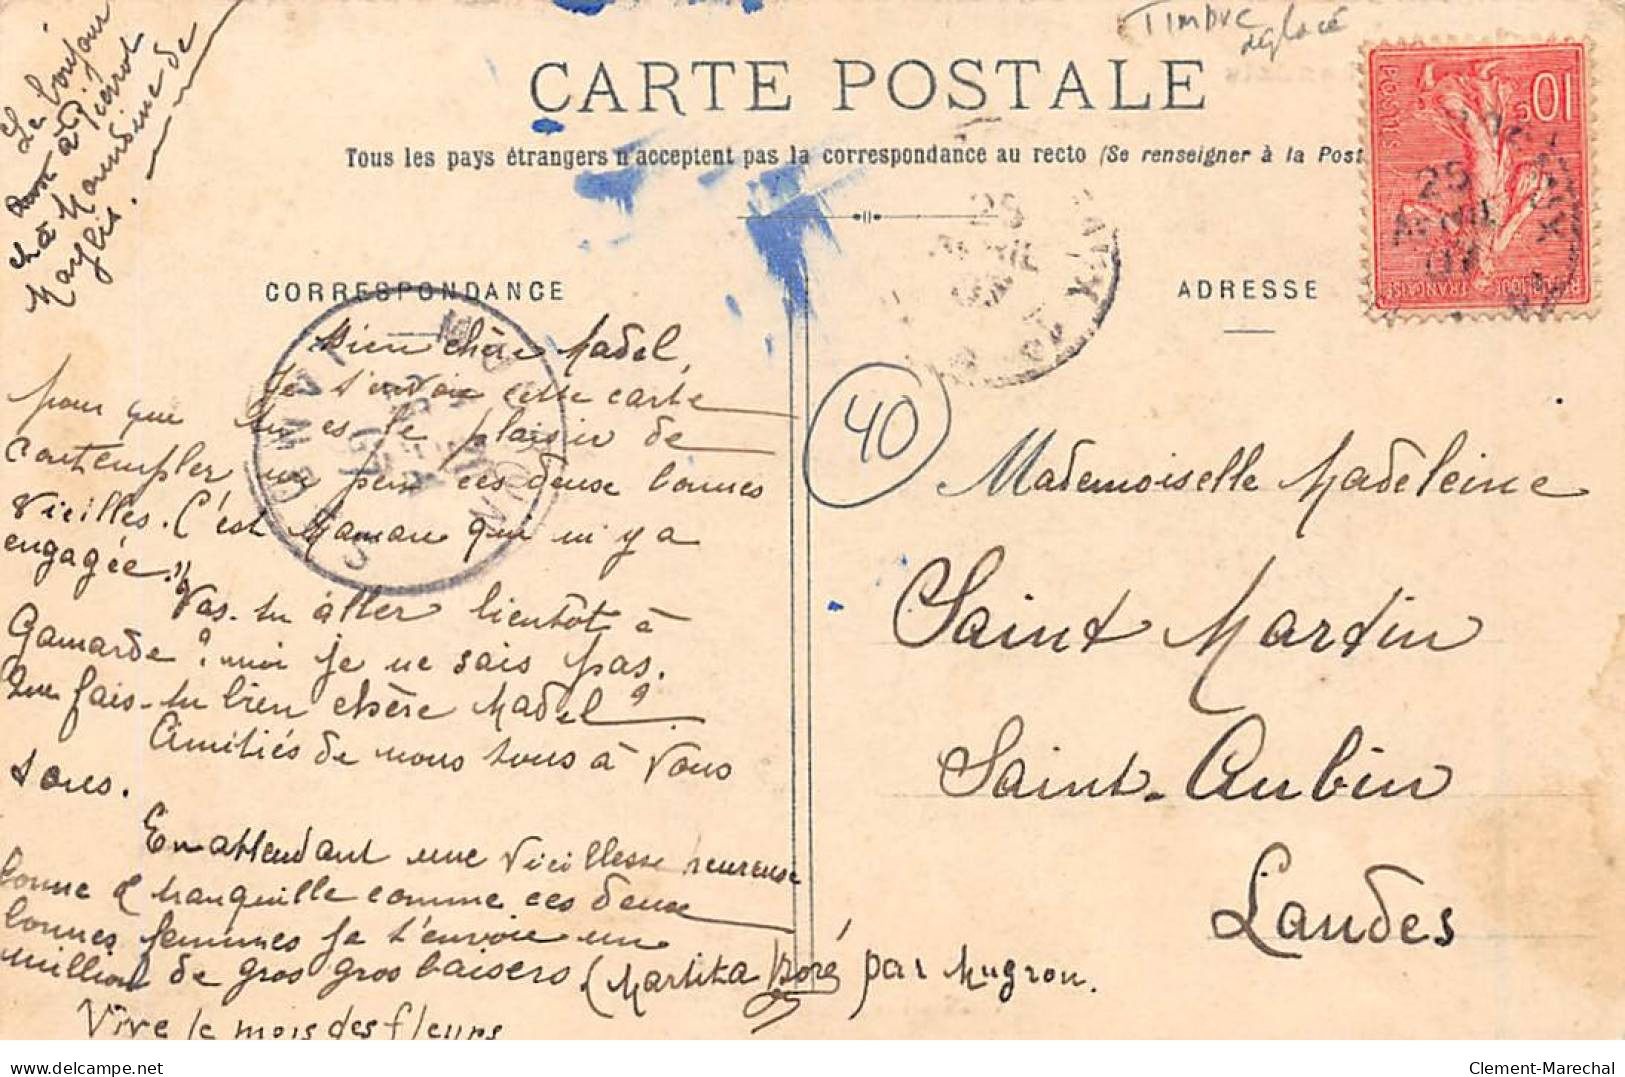 Timbre
déplacé
CARTE POSTALE
Tous les pays étrangers n'acceptent pas la correspondance au recto (Se renseigner à la Post
Le bonjour
à Pierrot
à Mondine de
Maylis.
CORRESPONDANCE
ADRESSE
Bien chère Madel,
Je t'envoie cette carte
pour que tu es le plaisir de
contempler un peu ces deux bonnes
vieilles. C'est Maman qui m'y a
engagée."
Vas-tu aller bientôt à
Gamarde? moi je ne sais pas.
Que fais-tu bien chère Madel?
Amitiés de nous tous à vous
tous.
En attendant une vieillesse heureuse
bonne & tranquille comme ces deux
bonnes femmes je t'envoie un
million de gros gros baisers (Martita Doré par Mugron.
Vive le mois des fleurs
40
Mademoiselle Madeleine
Saint Martin
Saint-Aubin
Landes
10c
POSTES
REPUBLIQUE FRANÇAISE
25
AVRIL
07
delcampe.net
Clement-Marechal